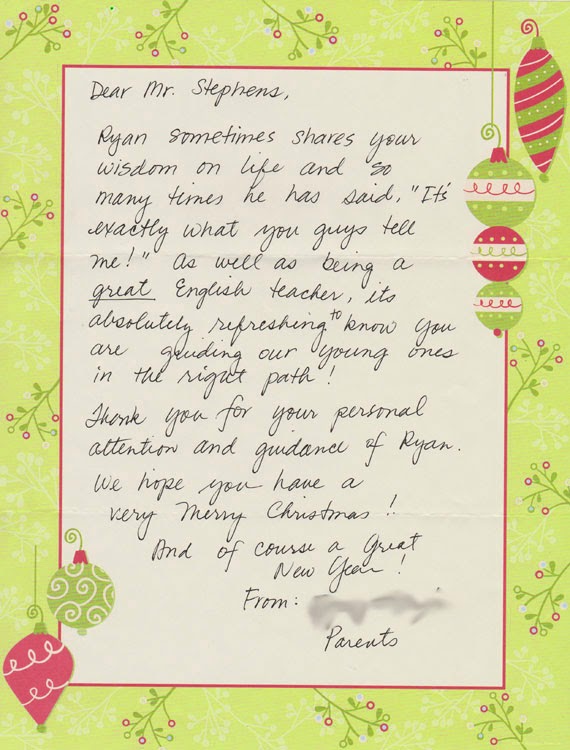 Dear Mr. Stephens,
Ryan sometimes shares your
wisdom on life and so
many times he has said, "It's
exactly what you guys tell
me!" As well as being a
great English teacher, its
absolutely refreshing to know you
are guiding our young ones
in the right path!
Thank you for your personal
attention and guidance of Ryan.
We hope you have a
very Merry Christmas!!
And of course a Great
New Year!
From:
Parents